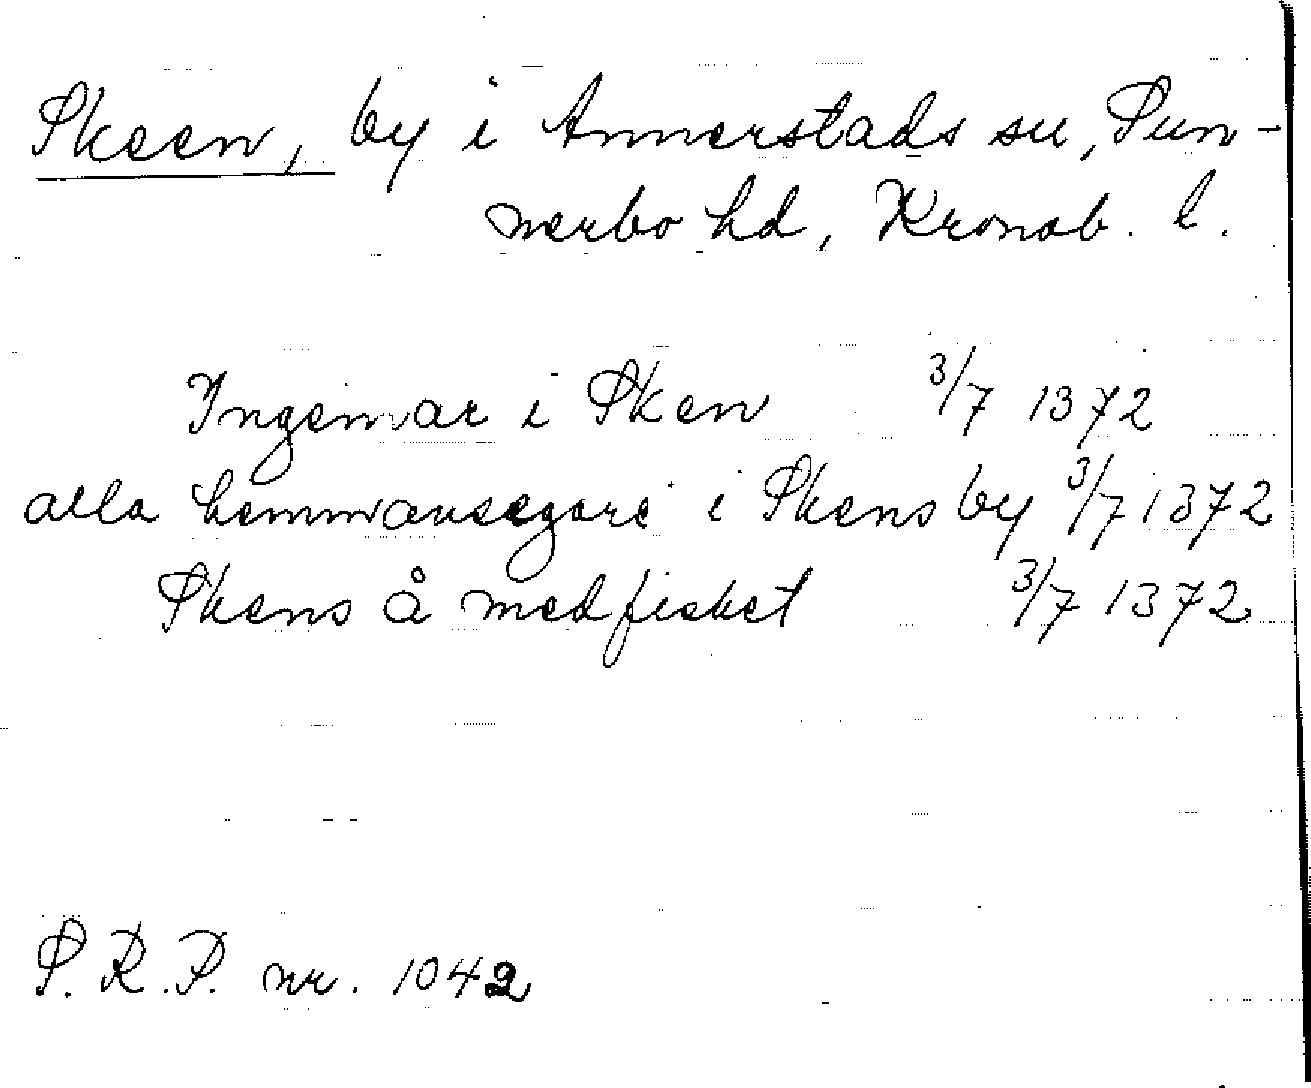 Skeen, by i Annerstads sn, Sun-
nerbo hd, Kronob. l.
Ingemar i Sken 3/7 1372
alla hemmansegare i Skens by 3/7 1372
Skens å med fisket 3/7 1372
S.R.P. nr. 1042